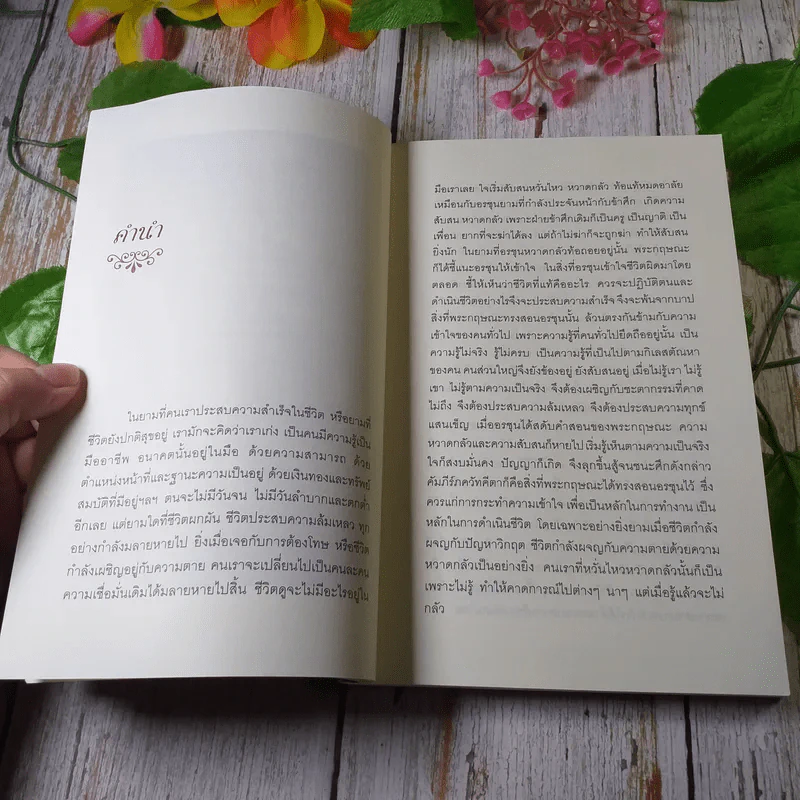 คำนำ
ในยามที่คนเราประสบความสำเร็จในชีวิต หรือยามที่
ชีวิตยังปกติสุขอยู่ เรามักจะคิดว่าเราเก่ง เป็นคนมีความรู้เป็น
มืออาชีพ อนาคตนั้นอยู่ในมือ ด้วยความสามารถ ด้วย
ตำแหน่งหน้าที่และฐานะความเป็นอยู่ ด้วยเงินทองและทรัพย์
สมบัติที่มีอยู่ฯลฯ ตนจะไม่มีวันจน ไม่มีวันลำบากและตกต่ำ
อีกเลย แต่ยามใดที่ชีวิตผกผัน ชีวิตประสบความล้มเหลว ทุก
อย่างกำลังมลายหายไป ยิ่งเมื่อเจอกับการต้องโทษ หรือชีวิต
กำลังเผชิญอยู่กับความตาย คนเราจะเปลี่ยนไปเป็นคนละคน
ความเชื่อมั่นเดิมได้มลายหายไปสิ้น ชีวิตดูจะไม่มีอะไรอยู่ใน
มือเราเลย ใจเริ่มสับสนหวั่นไหว หวาดกลัว ท้อแท้หมดอาลัย
เหมือนกับอรชุนยามที่กำลังประจันหน้ากับข้าศึก เกิดความ
สับสน หวาดกลัว เพราะฝ่ายข้าศึกเดิมก็เป็นครู เป็นญาติ เป็น
เพื่อน ยากที่จะฆ่าได้ลง แต่ถ้าไม่ฆ่าก็จะถูกฆ่า ทำให้สับสน
ยิ่งนัก ในยามที่อรชุนหวาดกลัวท้อถอยอยู่นั้น พระกฤษณะ
ก็ได้ชี้แนะอรชุนให้เข้าใจ ในสิ่งที่อรชุนเข้าใจชีวิตผิดมาโดย
ตลอด ชี้ให้เห็นว่าชีวิตที่แท้คืออะไร ควรจะปฏิบัติตนและ
ดำเนินชีวิตอย่างไรจึงจะประสบความสำเร็จ จึงจะพ้นจากบาป
สิ่งที่พระกฤษณะทรงสอนอรชุนนั้น ล้วนตรงกันข้ามกับความ
เข้าใจของคนทั่วไป เพราะความรู้ที่คนทั่วไปยึดถืออยู่นั้น เป็น
ความรู้ไม่จริง รู้ไม่ครบ เป็นความรู้ที่เป็นไปตามกิเลสตัณหา
ของคน คนส่วนใหญ่จึงยังข้องอยู่ ยังสับสนอยู่ เมื่อไม่รู้เรา ไม่รู้
เขา ไม่รู้ตามความเป็นจริง จึงต้องเผชิญกับชะตากรรมที่คาด
ไม่ถึง จึงต้องประสบความล้มเหลว จึงต้องประสบความทุกข์
แสนเข็ญ เมื่ออรชุนได้สดับคำสอนของพระกฤษณะ ความ
หวาดกลัวและความสับสนก็หายไป เริ่มรู้เห็นตามความเป็นจริง
ใจก็สงบมั่นคง ปัญญาก็เกิด จึงลุกขึ้นสู้จนชนะศึกดังกล่าว
คัมภีร์ภควัทคีตาก็คือสิ่งที่พระกฤษณะได้ทรงสอนอรชุนไว้ ซึ่ง
ควรแก่การกระทำความเข้าใจ เพื่อเป็นหลักในการทำงาน เป็น
หลักในการดำเนินชีวิต โดยเฉพาะอย่างยิ่งยามเมื่อชีวิตกำลัง
ผจญกับปัญหาวิกฤต ชีวิตกำลังผจญกับความตายด้วยความ
หวาดกลัวเป็นอย่างยิ่ง คนเราที่หวั่นไหวหวาดกลัวนั้นก็เป็น
เพราะไม่รู้ ทำให้คาดการณ์ไปต่างๆ นาๆ แต่เมื่อรู้แล้วจะไม่
กลัว